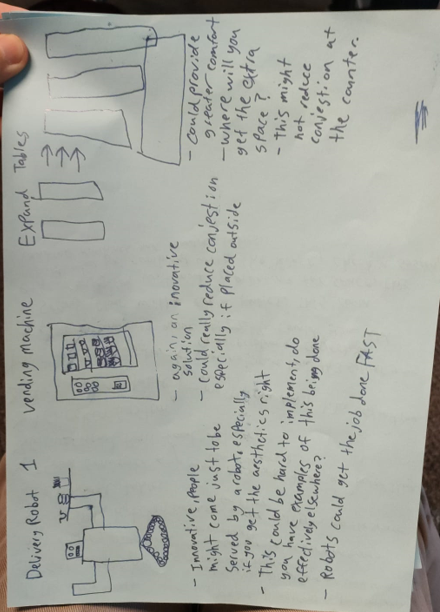 Delivery Robot 1
- Innovative people
might come just to be
served by a robot, especially
if you get the aesthetics right
- This could be hard to implement, do
you have examples of this being done
effectively elsewhere?
- Robots could get the job done FAST
vending machine
- again, an inovative
solution
- Could really reduce conjestion
especially if placed outside
Expand Tables
- Could provide
greater comfort
- where will you
get the extra
space?
- This might
not reduce
conjestion at
the counter.